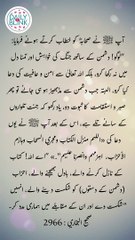 DAILY DUA LINK
آپ ﷺ نے صحابہؓ کو خطاب کرتے ہوئے فرمایا:
”لوگو! دشمن کے ساتھ جنگ کی خواہش اور تمنا دل
میں نہ رکھا کرو، بلکہ اللہ تعالیٰ سے امن و عافیت کی دعا
کیا کرو، البتہ جب دشمن سے مڈبھیڑ ہو ہی جائے تو پھر
صبر و استقامت کا ثبوت دو، یاد رکھو کہ جنت تلواروں
کے سائے تلے ہے۔“ اس کے بعد آپ ﷺ نے یوں
دعا کی ”اللهم منزل الكتاب ومجري السحاب وهازم
الأحزاب، اهزمهم وانصرنا عليهم“۔ ”اے اللہ! کتاب
کے نازل کرنے والے، بادل بھیجنے والے، احزاب
(دشمن کے دستوں) کو شکست دینے والے، انہیں
شکست دے اور ان کے مقابلے میں ہماری مدد کر۔
صحیح البخاری : 2966